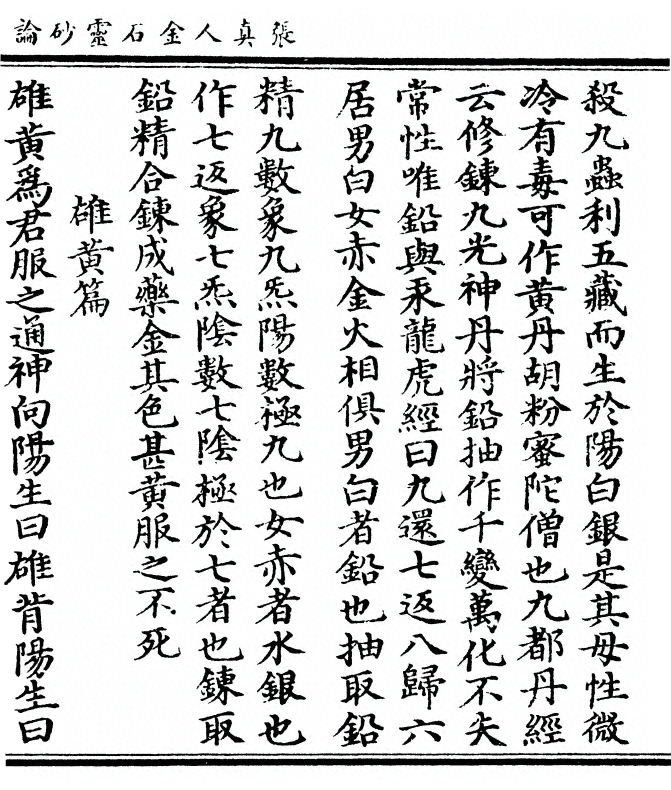 張真人金石靈砂論
殺九蟲利五藏而生於陽白銀是其母性微
冷有毒可作黃丹胡粉蜜陀僧也九都丹經
云修鍊九光神丹將鉛抽作千變萬化不失
常性唯鉛與汞龍虎經曰九還七返八歸六
居男白女赤金火相俱男白者鉛也抽取鉛
精九數象九炁陽數極九也女赤者水銀也
作七返象七炁陰數七陰極於七者也鍊取
鉛精合鍊成藥金其色甚黃服之不死
雄黃篇
雄黃爲君服之通神向陽生曰雄背陽生曰